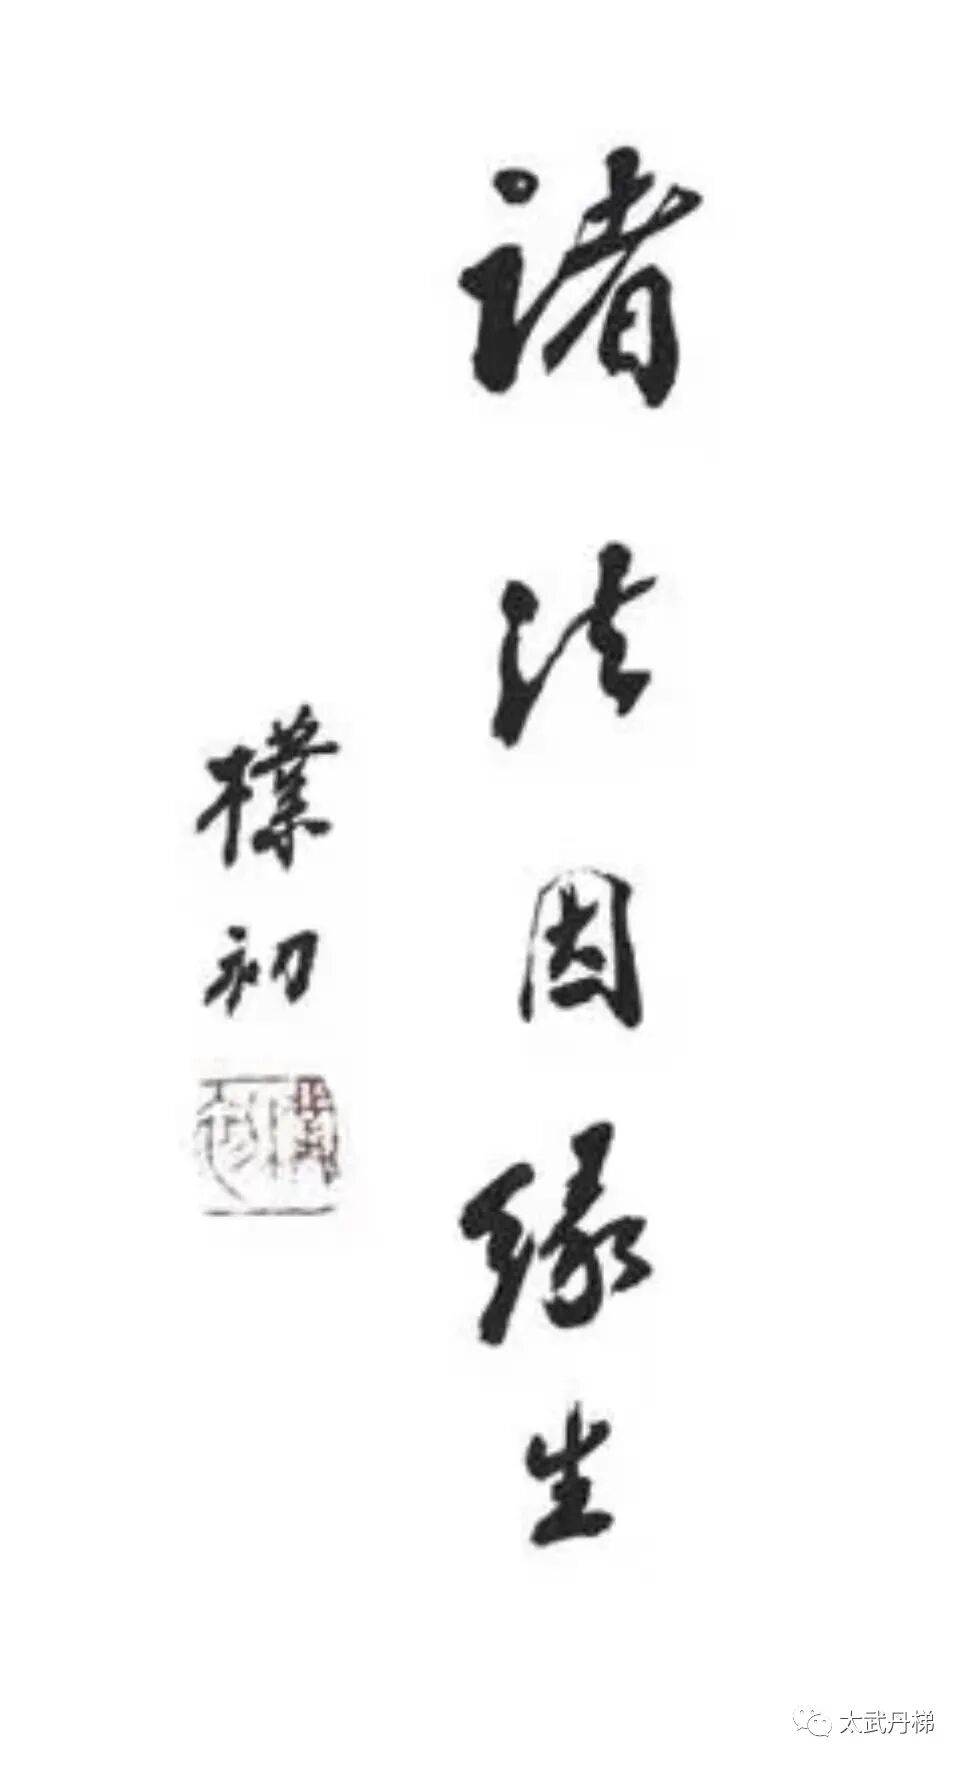 諸法因緣生
樸初
太武丹梯